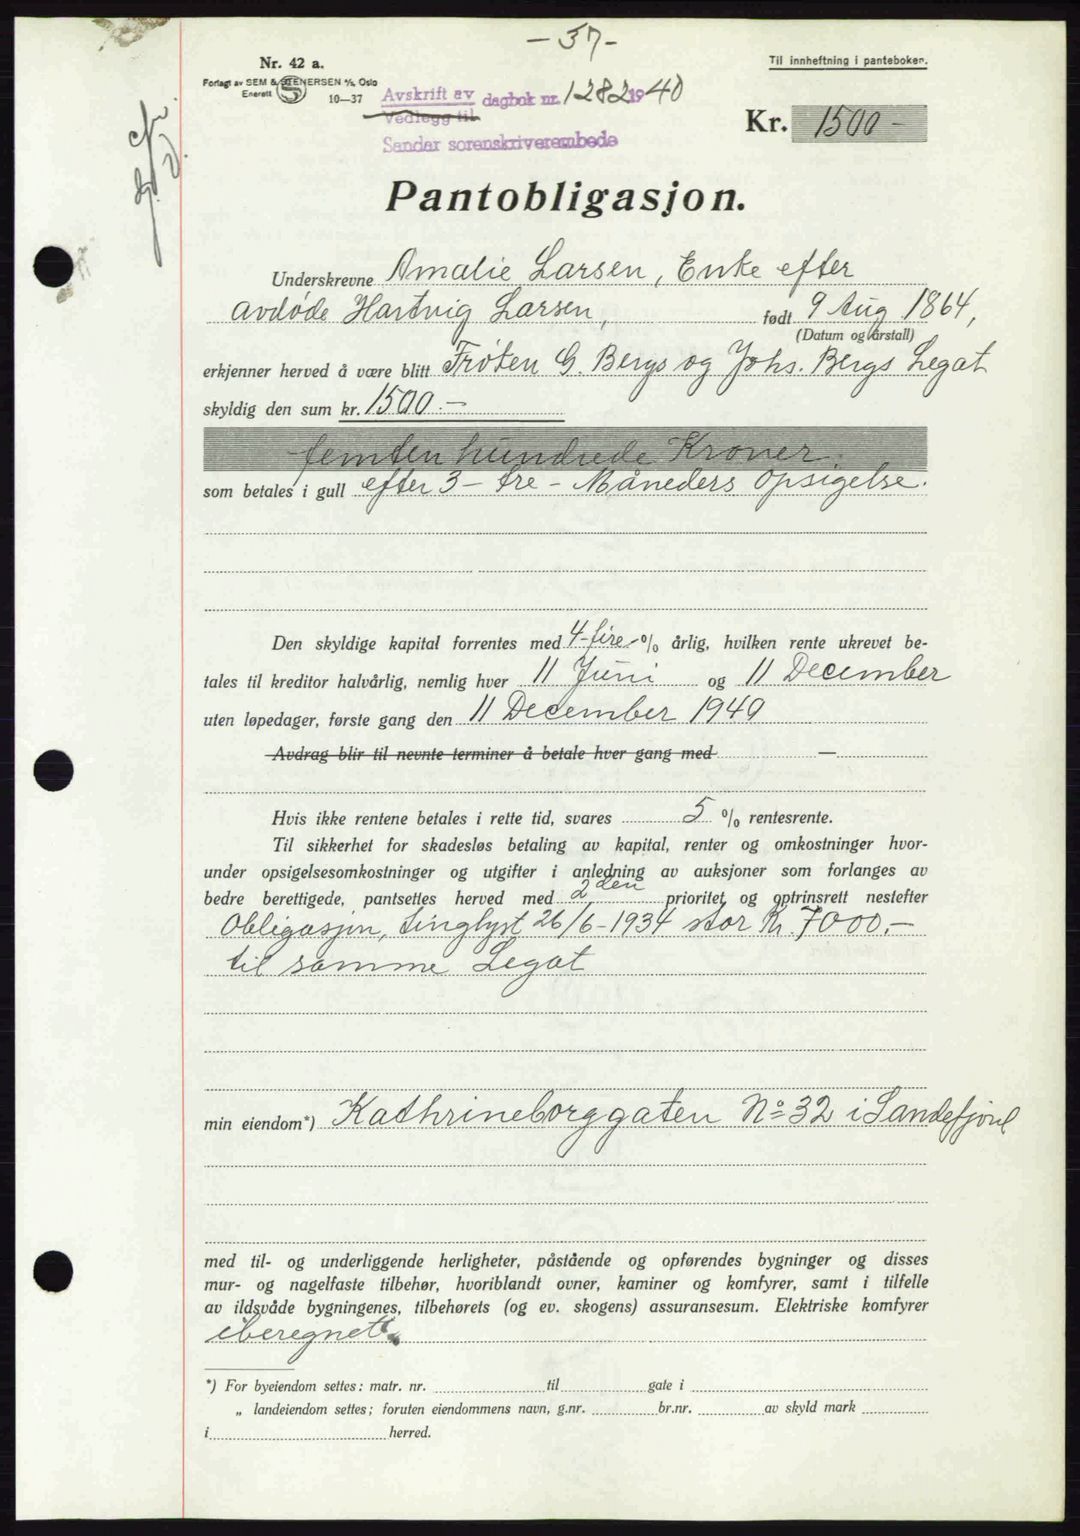 - 37 -
Nr. 42 a.
Til innheftning i panteboken.
Forlagt av SEM & STENERSEN A/S, Oslo
Enerett 10—37
Avskrift av dagbok nr. 1282 1940
Vedlegg til
Sandar sorenskriverembede
Kr. 1500 -
Pantobligasjon.
Underskrevne Amalie Larsen, Enke efter
avdøde Hartvig Larsen, født 9 Aug 1864,
(Datum og årstall)
erkjenner herved å være blitt Frøken G. Bergs og Johs. Bergs Legat
skyldig den sum kr. 1500.-
femten hundrede Kroner.
som betales i gull efter 3 - tre - Måneders Opsigelse.
Den skyldige kapital forrentes med 4-fire-% årlig, hvilken rente ukrevet be-
tales til kreditor halvårlig, nemlig hver 11 Juni og 11 December
uten løpedager, første gang den 11 December 1940
Avdrag blir til nevnte terminer å betale hver gang med —
Hvis ikke rentene betales i rette tid, svares 5 % rentesrente.
Til sikkerhet for skadesløs betaling av kapital, renter og omkostninger hvor-
under opsigelsesomkostninger og utgifter i anledning av auksjoner som forlanges av
bedre berettigede, pantsettes herved med 2den prioritet og optrinsrett nestefter
Obligasjon, tinglyst 26/6-1934 stor Kr. 7000.-
til samme Legat
min eiendom*) Kathrineborggaten No 32 i Sandefjord
med til- og underliggende herligheter, påstående og opførendes bygninger og disses
mur- og nagelfaste tilbehør, hvoriblandt ovner, kaminer og komfyrer, samt i tilfelle
av ildsvåde bygningenes, tilbehørets (og ev. skogens) assuransesum. Elektriske komfyrer
iberegnet.
*) For byeiendom settes: matr. nr. til gate i
„ landeiendom settes; foruten eiendommens navn, g.nr. br.nr. av skyld mark
i herred.